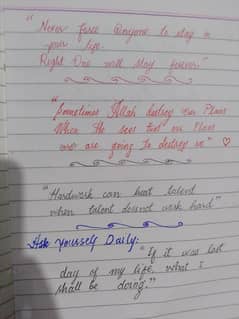 "Never force anyone to stay in
your life.
Right One will stay forever."
"Sometimes Allah destroy our Plans
When He sees that our Plans
are are going to destroy us" ♡
"Hardwork can beat talent
when talent doesnot work hard"
Ask yourself Daily:
"If it was last
day of my life, what I
shall be doing."